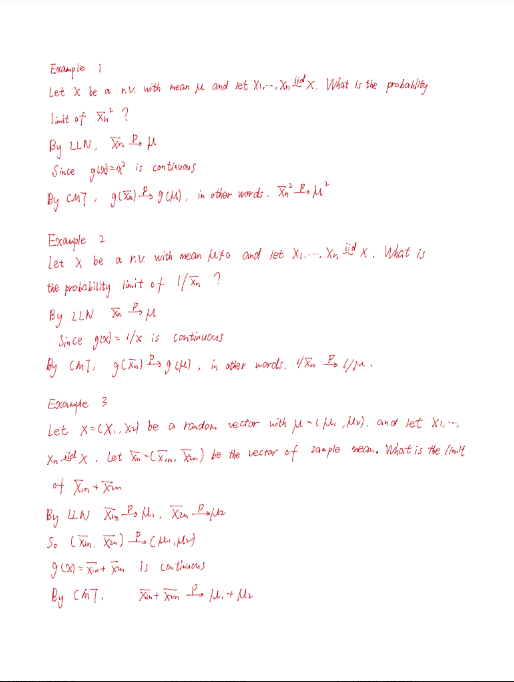 Example 1
Let X be a r.v. with mean μ and let X₁,⋯,Xₙ iid~ X. What is the probability
limit of X̄ₙ² ?
By LLN, X̄ₙ →ᵖ μ
Since g(x)=x² is continuous
By CMT, g(X̄ₙ) →ᵖ g(μ), in other words. X̄ₙ² →ᵖ μ²
Example 2
Let X be a r.v. with mean μ≠0 and let X₁,⋯, Xₙ iid~ X. What is
the probability limit of 1/X̄ₙ ?
By LLN X̄ₙ →ᵖ μ
Since g(x) = 1/x is continuous
By CMT, g(X̄ₙ) →ᵖ g(μ), in other words, 1/X̄ₙ →ᵖ 1/μ.
Example 3
Let X=(X₁, X₂) be a random vector with μ=(μ₁, μ₂), and let X₁,⋯,
Xₙ iid~ X. Let X̄ₙ=(X̄₁ₙ, X̄₂ₙ) be the vector of sample mean. What is the limit
of X̄₁ₙ + X̄₂ₙ
By LLN X̄₁ₙ →ᵖ μ₁, X̄₂ₙ →ᵖ μ₂
So (X̄₁ₙ, X̄₂ₙ) →ᵖ (μ₁, μ₂)
g(x) = X̄₁ₙ + X̄₂ₙ is continuous
By CMT. X̄₁ₙ + X̄₂ₙ →ᵖ μ₁ + μ₂